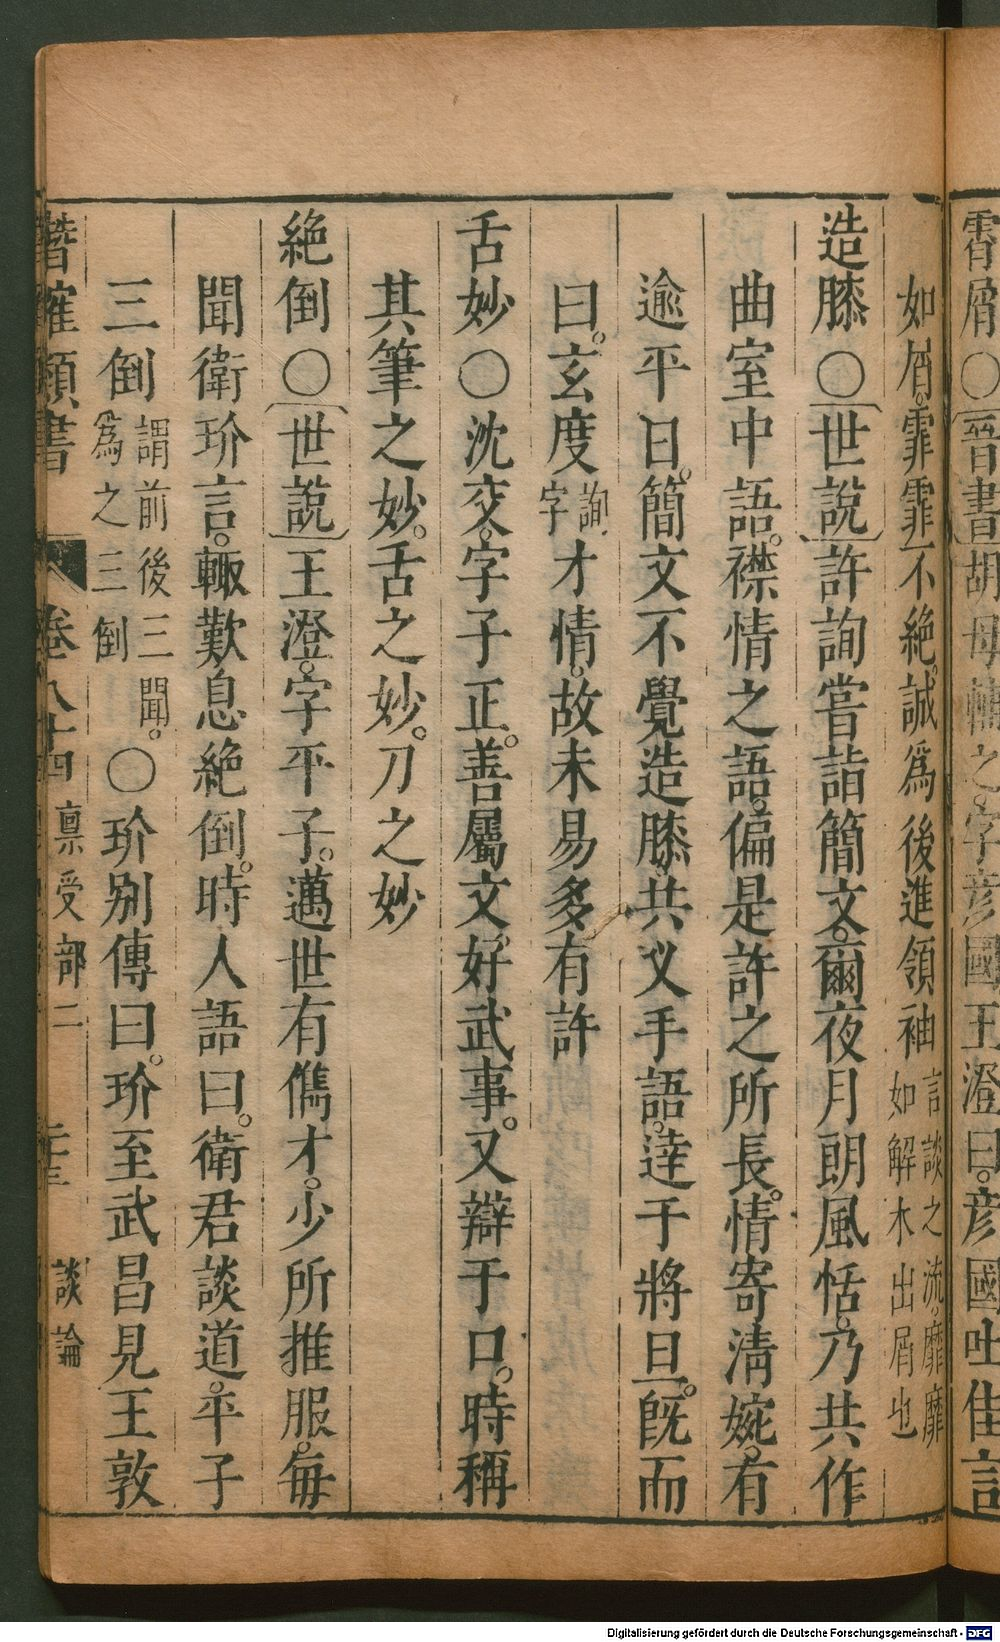 霄屑〇晉書胡母輔之字彥國王澄曰彥國吐佳言
如屑霏霏不絶誠爲後進領袖言談之流靡靡
如解木出屑也
造膝〇世說許詢嘗詣簡文爾夜月朗風恬乃共作
曲室中語襟情之語偏是許之所長情寄清婉有
逾平日簡文不覺造膝共义手語達于將旦旣而
曰玄度詢
字才情故未易多有許
舌妙〇沈友字子正善屬文好武事又辯于口時稱
其筆之妙舌之妙刀之妙
絶倒〇世說王澄字平子邁世有儁才少所推服每
聞衛玠言輙歎息絶倒時人語曰衛君談道平子
三倒謂前後三聞
爲之三倒〇玠別傳曰玠至武昌見王敦
類書 卷八十四 禀受部二 談論
Digitalisierung gefördert durch die Deutsche Forschungsgemeinschaft - DFG